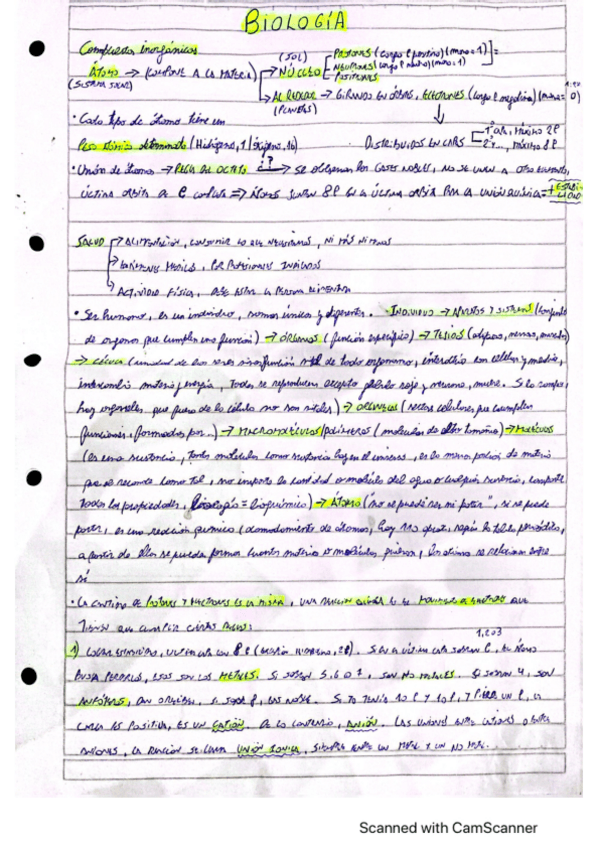 BIOLOGÍA
Compuestos inorgánicos (SOL) Protones (carga + positiva) (masa = 1)
Átomo → (COMPONE A LA MATERIA) → NÚCLEO Neutrones (carga neutra) (masa = 1)
(SISTEMA SOLAR)
→ AL REDEDOR → GIRANDO EN ÓRBITAS, ELECTRONES (carga negativa) (masa = 0)
(PLANETAS)
• Cada tipo de átomo tiene un 1° orb, máximo 2e
Peso atómico determinado (Hidrógeno, 1 / Oxígeno, 16) DISTRIBUIDOS EN CAPAS 2° máximo 8e
• Unión de átomos → REGLA DEL OCTETO → Se observan los GASES NOBLES, NO SE UNEN A OTRO ELEMENTO,
última órbita de e completa ⇒ Átomos juntan 8e en la última órbita por la UNIÓN QUÍMICA = + ESTABILIDAD
SALUD → ALIMENTACIÓN, CONSUMIR LO QUE NECESITAMOS, NI MÁS NI MENOS
→ EXÁMENES MÉDICOS, POR PROFESIONALES INDICADOS
→ ACTIVIDAD FÍSICA, la PERSONA
• Ser humano, es un individuo, somos únicos y diferentes. - INDIVIDUO → APARATOS Y SISTEMAS (conjunto
de órganos que cumplen una función) → ÓRGANOS (función específica) → TEJIDOS (adiposo, nervioso, muscular)
→ CÉLULA (unidad de los seres vivos, función vital de todo organismo, interactúa con células y medio,
intercambia materia y energía, Todas se reproducen excepto glóbulo rojo y neurona, muere. Si lo rompes,
hay organelas que fuera de la célula no son vitales) → ORGANELAS (partes celulares que cumplen
funciones, formadas por...) → MACROMOLÉCULAS/polímeros (moléculas de alto tamaño) → MOLÉCULAS
(es una sustancia, Tantas moléculas como sustancia haya en el universo, es la menor porción de materia
que se reconoce como tal, no importa la cantidad es molécula del agua o cualquier sustancia, comparte
todas las propiedades, biología = bioquímica) → ÁTOMO ("no se puede ver ni partir", si se puede
partir, es una reacción química (acomodamiento de átomos, hay 110 aprox, según la tabla periódica,
a partir de ellos se pueden formar cuanta materia o moléculas quieran, los átomos se relacionan entre
sí
• La cantidad de Protones y electrones es la misma, UNA REACCIÓN QUÍMICA MOVIMIENTO de electrones QUE
TIENEN QUE CUMPLIR CIERTAS REGLAS: 1, 2 o 3
1) LOGRAR ESTABILIDAD, ÚLTIMA CAPA CON 8 e (EXCEPTO HIDRÓGENO, 2e). SI EN LA ÚLTIMA CAPA SOBRAN e, EL ÁTOMO
BUSCA PERDERLOS, ESOS SON LOS METALES. SI SOBRAN 5, 6 o 7, SON NO METALES. SI SOBRAN 4, SON
ANFÓTEROS, SI TENÍA 10 P Y 10 e, Y PIERDE UN e, LA
CARGA ES POSITIVA, ES UN CATIÓN. DE LO CONTRARIO, ANIÓN. LAS UNIONES ENTRE CATIONES Y
ANIONES, LA REACCIÓN SE LLAMA UNIÓN IÓNICA, SIEMPRE ENTRE UN METAL Y UN NO METAL.
Scanned with CamScanner